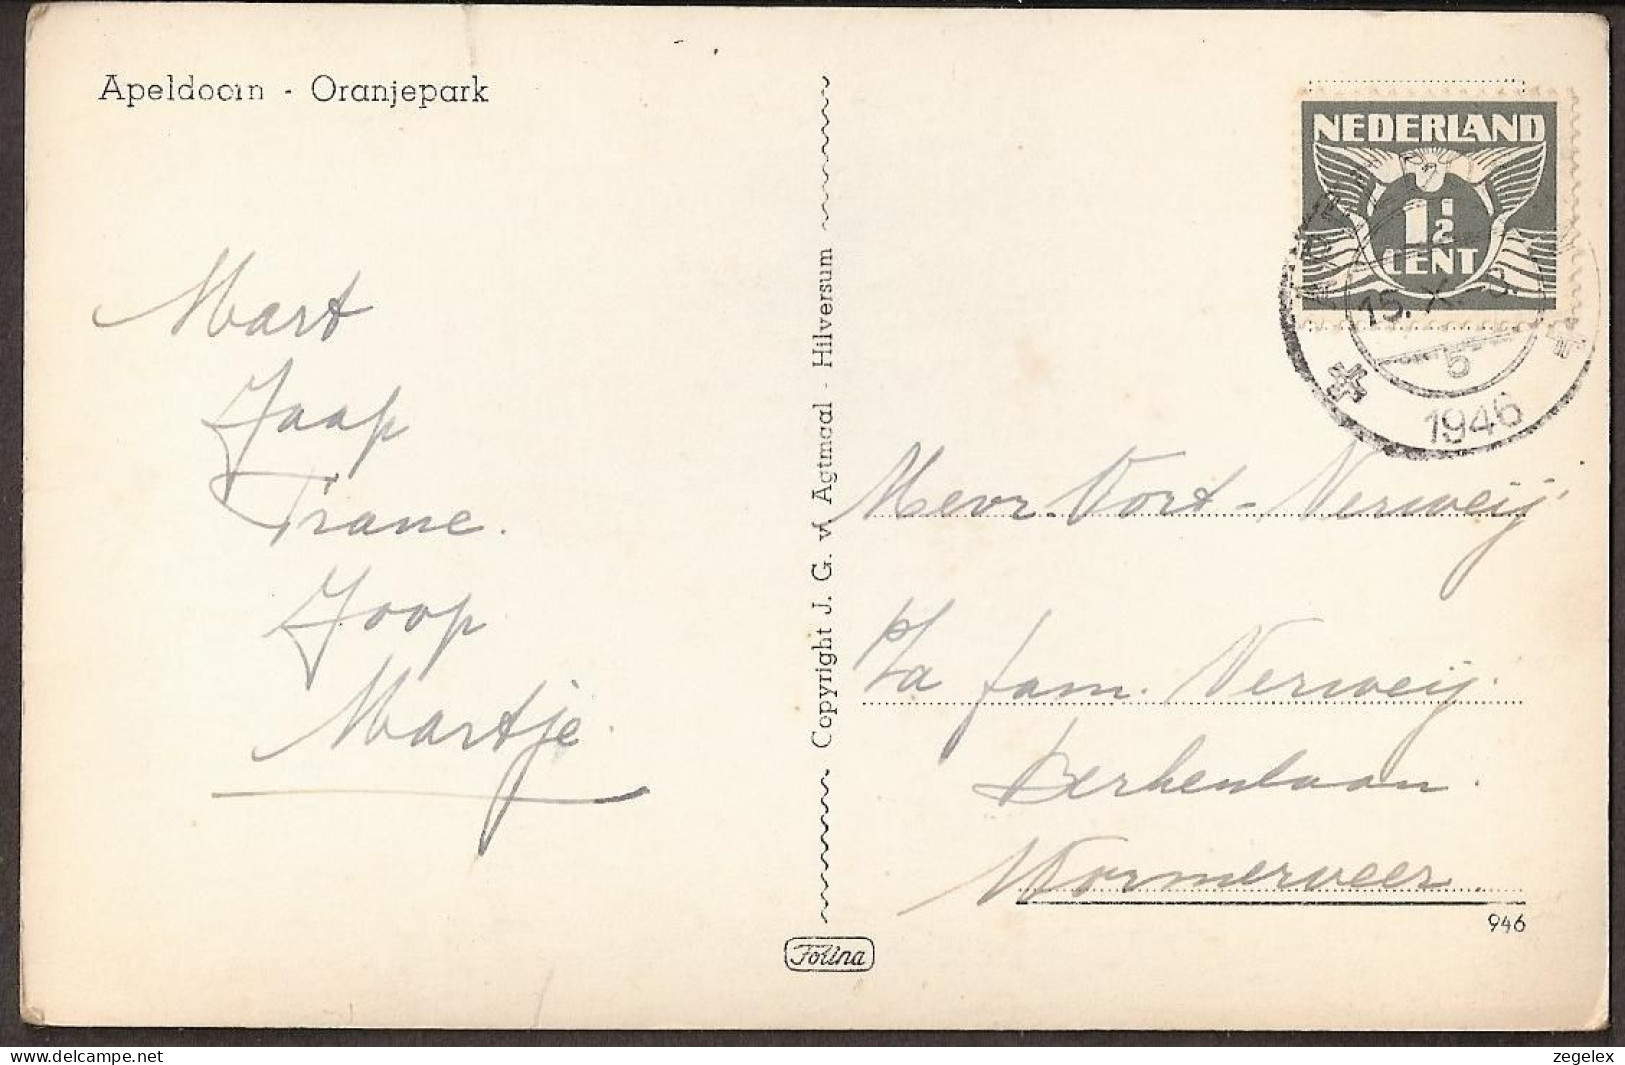 Apeldoorn - Oranjepark
NEDERLAND
1½
CENT
15. X.
5
1946
Mart
Jaap
Trane.
Joop
Martje.
Copyright J. G. v. Agtmaal - Hilversum
Mevr. Vort - Verweij
p/a fam. Verweij.
Berkenlaan.
Wormerveer.
946
Folina
delcampe.net
zegelex